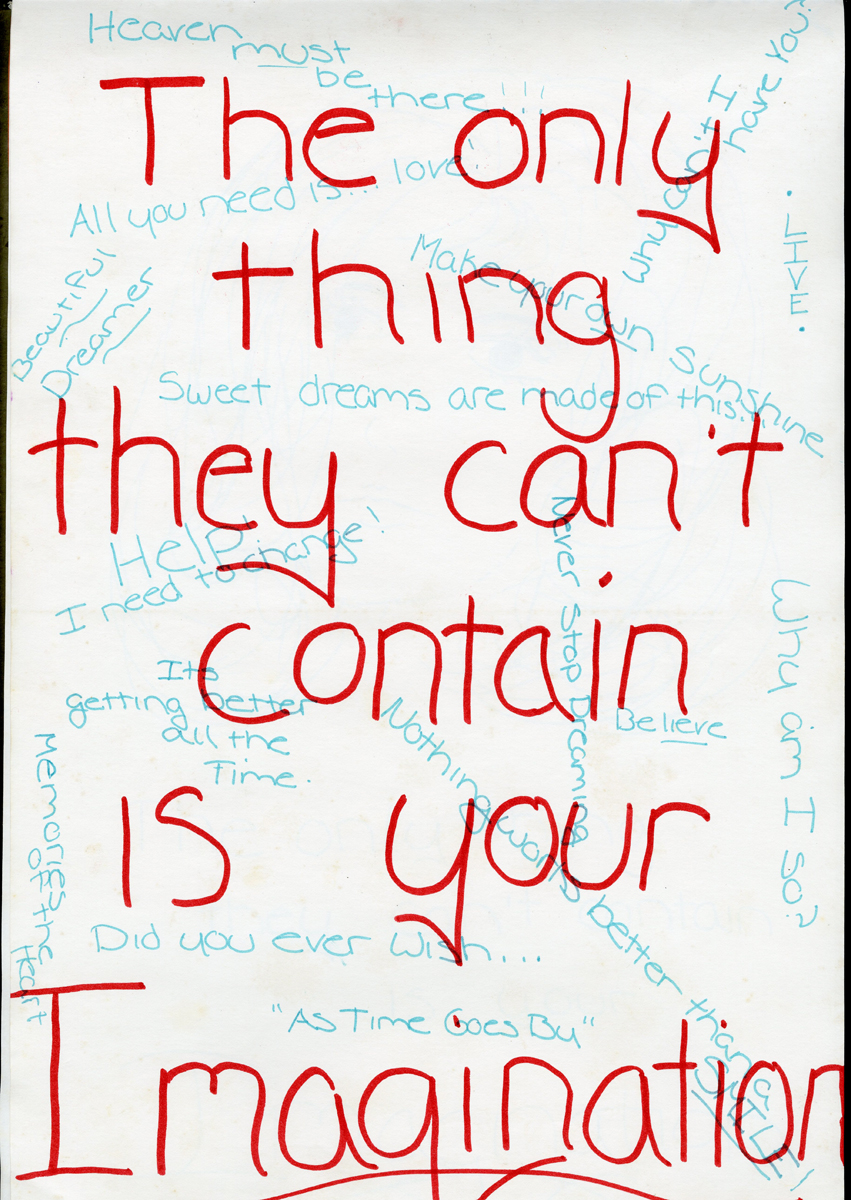 Heaven
must
be
there!!!
The only
Why can't I
have You?
All you need is... love!
• LIVE •
thing
Make your own sunshine
Beautiful
Dreamer
Sweet dreams are made of this...
they can't
Help!
I need to change!
Never Stop Dreaming
contain
Its
getting better
all the
Time.
Believe
Why am I so?
Nothing works better than a
SMILE!
Memories
of the
Heart
is your
Did you ever wish....
"As Time Goes By"
Imagination